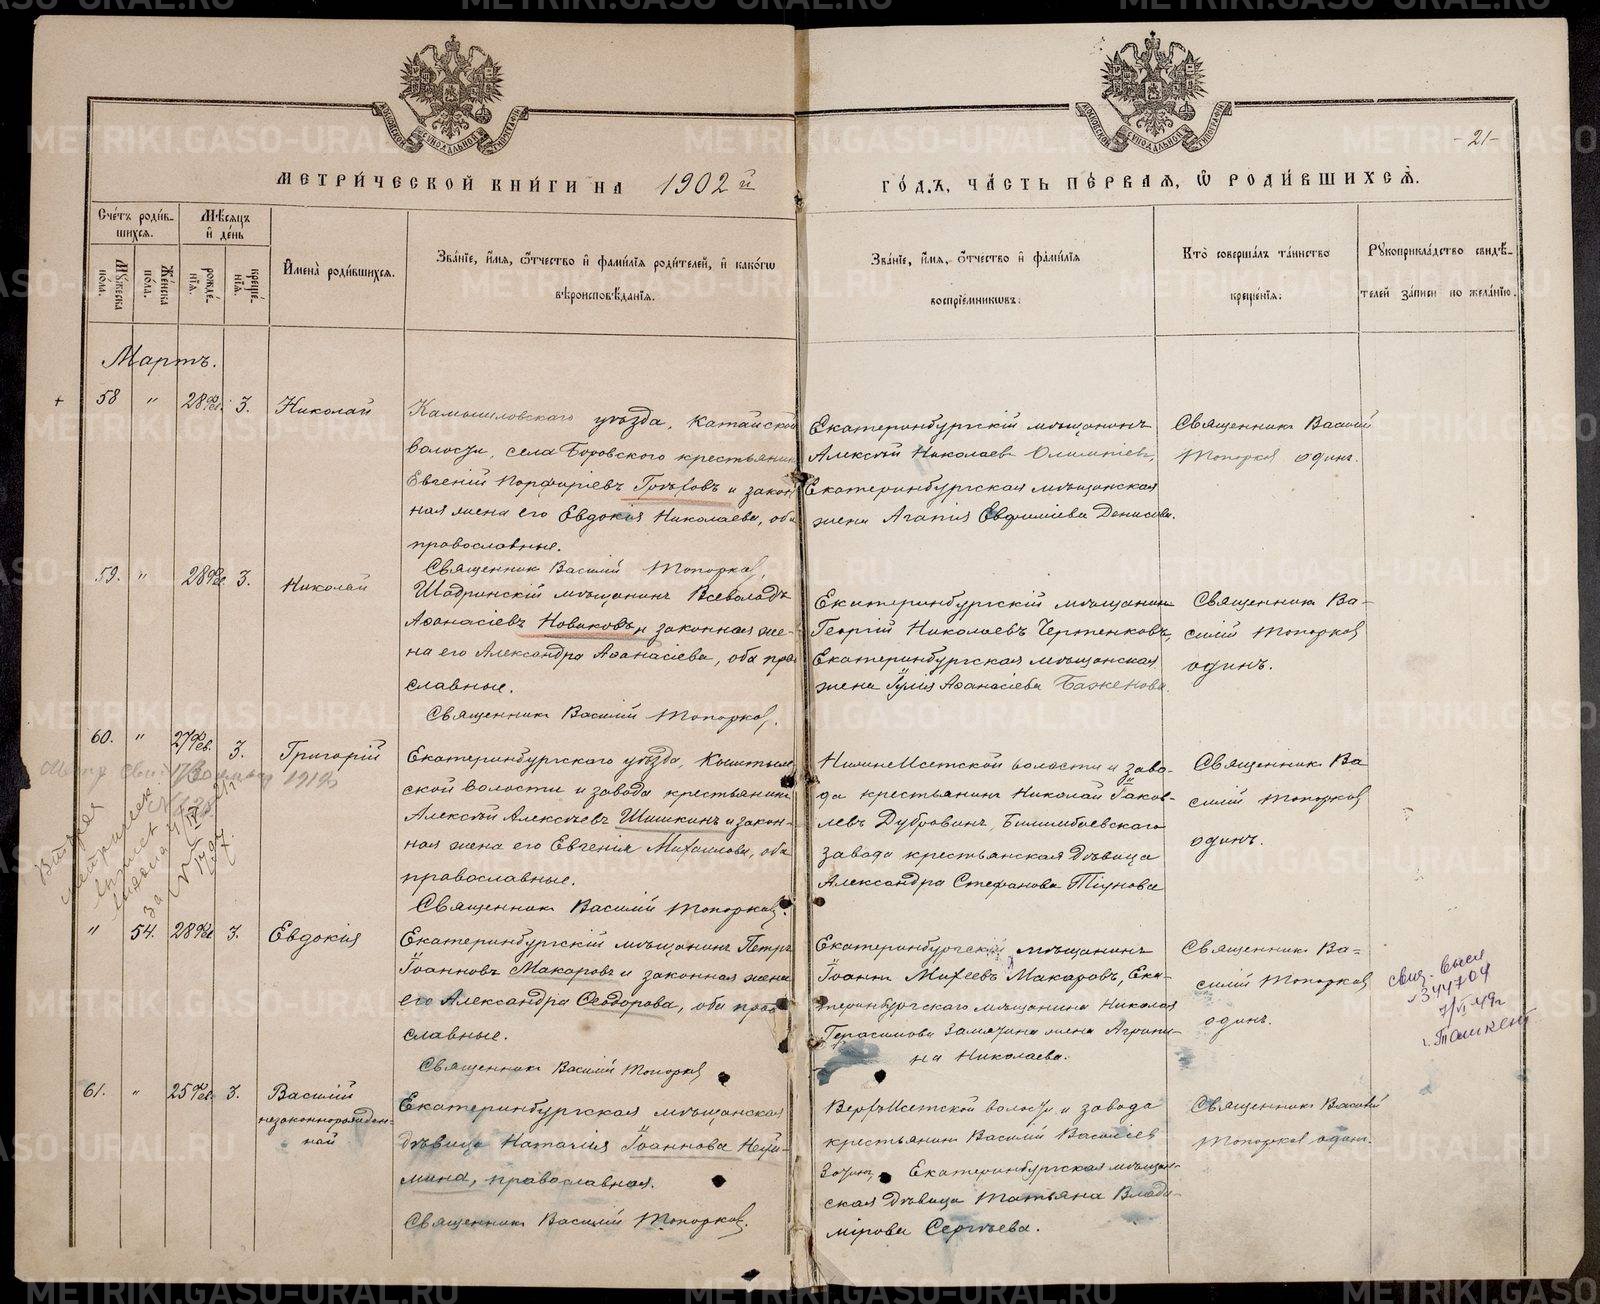 МЕТРИЧЕСКОЙ КНИГИ НА 1902й
ГОДЪ, ЧАСТЬ ПЕРВАЯ, Ѡ РОДИВШИХСЯ.
-21-
Счетъ родив-
шихся.
Мужеска
пола.
Женска
пола.
Мѣсяцъ
и день
рожде-
нія.
креще-
нія.
Имена родившихся.
Званіе, имя, ѿчество и фамилія родителей, и какогѡ
вѣроисповѣданія.
Званіе, имя, ѿчество и фамилія
воспріемниковъ.
Кто совершалъ таинство
крещенія.
Рукоприкладство свидѣ-
телей записи по желанію.
Мартъ.
+ 58 " 28 Фев. 3. Николай
Камышловскаго уѣзда, Катайской
волости, села Боровского крестьянин
Евгеній Порфиріевъ и закон-
ная жена его Евдокія Николаева, оба
православные.
Священникъ Василій Топорков.
Екатеринбургскій мѣщанинъ
Алексѣй Николаевъ Олимпіевъ,
Екатеринбургская мѣщанская
жена Агапія Евфиміева Денисова.
Священникъ Василій
Топорков одинъ.
59. " 28 Фев. 3. Николай
Шадринскій мѣщанинъ Всеволодъ
Аѳанасіевъ Новиковъ и законная же-
на его Александра Аѳанасіева, оба пра-
славные.
Священникъ Василій Топорков.
Екатеринбургскій мѣщанинъ
Георгій Николаевъ Чертенковъ,
Екатеринбургская мѣщанская
жена Іулія Аѳанасіева Баженова.
Священникъ Ва-
силій Топорков
одинъ.
60. " 27 Фев. 3. Григорій
Екатеринбургскаго уѣзда, Кыштым-
ской волости и завода крестьянинъ
Алексѣй Алексѣевъ Шишкинъ и закон-
ная жена его Евгенія Михаилова, оба
православные.
Священникъ Василій Топорков.
НижнеИсетской волости и заво-
да крестьянинъ Николай Іаков-
левъ Дубровинъ, Билимбаевскаго
завода крестьянская дѣвица
Александра Стефанова Тіунова
Священникъ Ва-
силій Топорков
одинъ.
" 54. 28 Фев 3. Евдокія
Екатеринбургскій мѣщанинъ Петръ
Іоанновъ Макаровъ и законная жена
его Александра Ѳеодорова, оба право-
славные.
Священникъ Василій Топорков
Екатеринбургскій мѣщанинъ
Іоаннъ Михеевъ Макаровъ, Ека-
теринбургскаго мѣщанина Николая
Герасимова Замягина жена Агрипи-
на Николаева.
Священникъ Ва-
силій Топорков
одинъ.
свид. высл
344704
г. Ташкент
61. " 25 Фев. 3. Василій
незаконнорожден-
ный
Екатеринбургская мѣщанская
дѣвица Наталія Іоаннова Неуй-
мина, православная.
Священникъ Василій Топорков.
ВерхъИсетской волости и завода
крестьянинъ Василій Василіев
Екатеринбургская мѣщан-
ская дѣвица Татьяна Влади-
мірова Сергѣева.
Священникъ Василій
Топорков одинъ.
METRIKI.GASO-URAL.RU